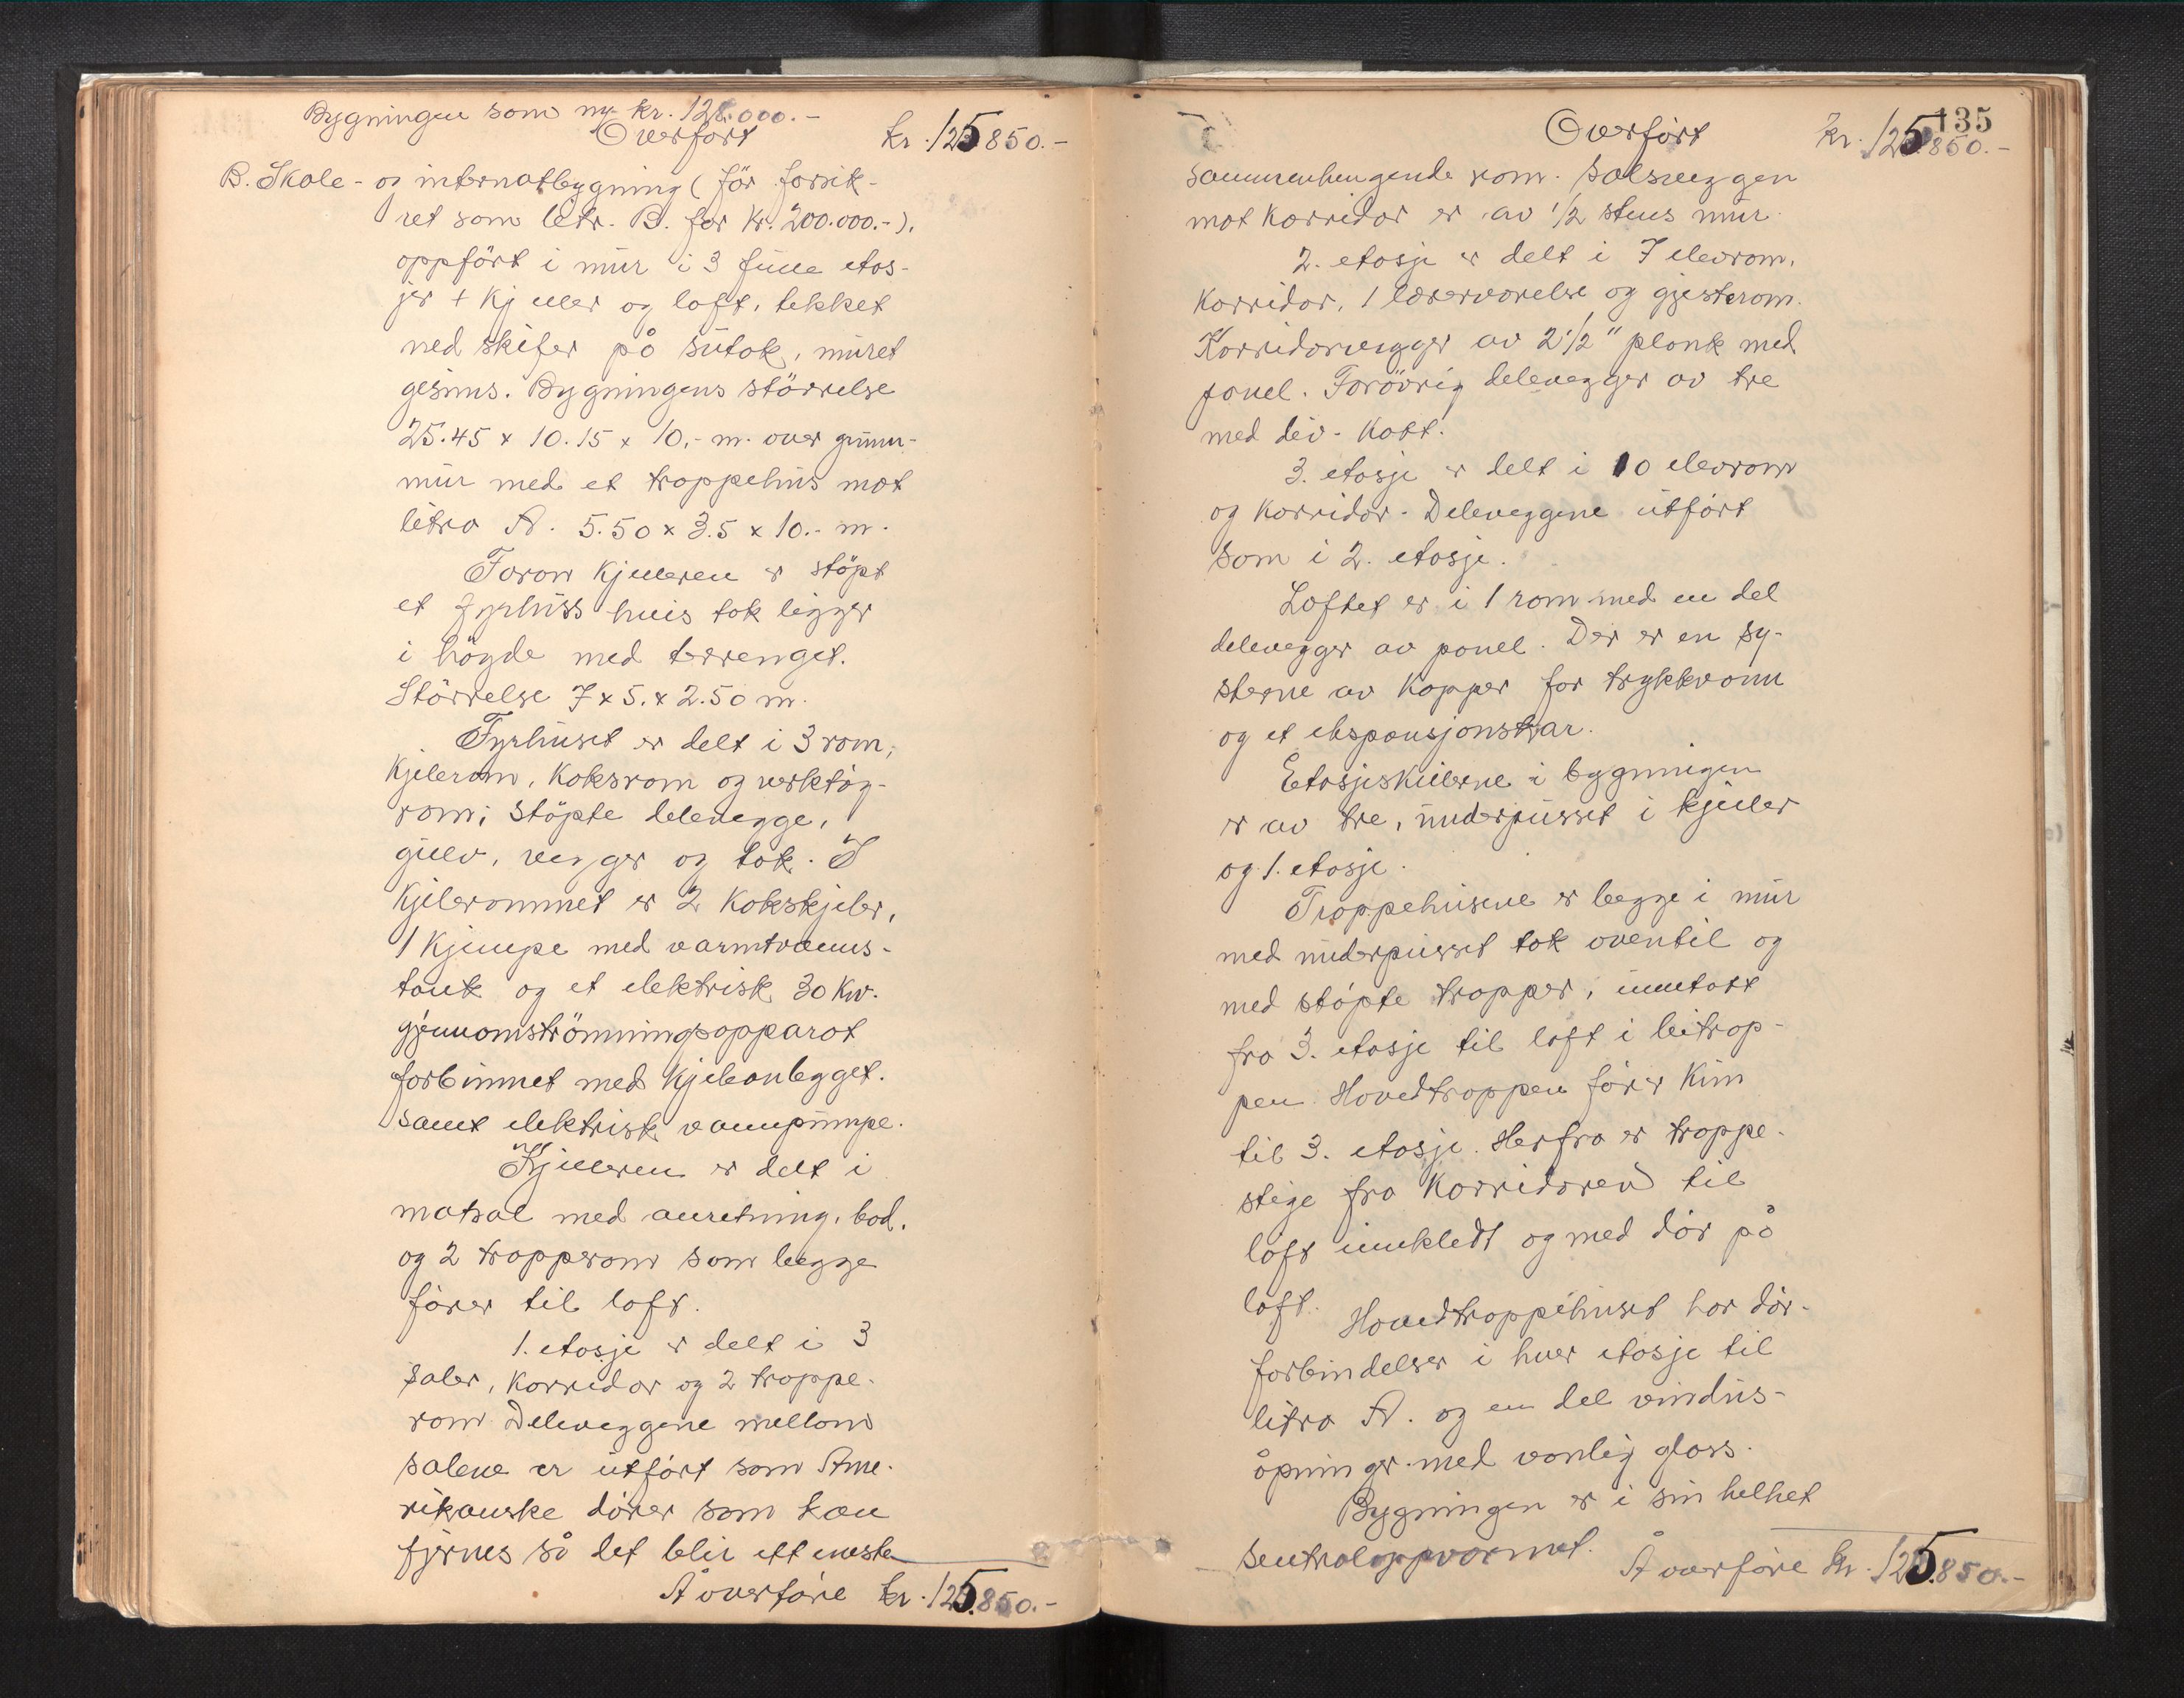 Bygningen som ny kr. 128.000.-
Overført kr. 125850.-
B. Skole- og internatbygning (før forsik-
ret som litr. B. for kr. 200.000.-).
oppført i mur i 3 fulle etas-
jer + kjeller og loft, tekket
med skifer på sutak, muret
gesims. Bygningens størrelse
25.45 x 10.15 x 10,- m. over grunn-
mur med et trappehus mot
litra A. 5.50 x 3.5 x 10.- m.
Foran kjelleren er støpt
et fyrhus hvis tak ligger
i høgde med terrenget.
Størrelse 7 x 5. x 2.50 m.
Fyrhuset er delt i 3 rom,
kjelerom, koksrom og verktøy-
rom; støpte delevegge,
gulv, vegger og tak. I
kjelerommet er 2 kokskjeler,
1 kjempe med varmtvanns-
tank og et elektrisk 30 Kw.
gjennomströmningsapparat
forbinnet med kjeleanlegget.
samt elektrisk vannpumpe.
Kjelleren er delt i
matsal med anretning, bod,
og 2 trapperom som begge
fører til loft.
1. etasje er delt i 3
saler, korridor og 2 trappe-
rom. Deleveggene mellom
salene er utført som Ame-
rikanske dører som kan
fjernes så det blir ett eneste
Å overføre kr. 125.850.-
135
Overført kr. 125.850.-
sammenhengende rom. Salsveggen
mot korridor er av 1/2 stens mur.
2. etasje er delt i 7 elevrom,
korridor, 1 lærerværelse og gjesterom.
Korridorvegger av 2 1/2" plank med
panel. Forøvrig delevegger av tre
med div. kott.
3. etasje er delt i 10 elevrom
og korridor. Deleveggene utført
som i 2. etasje.
Loftet er i 1 rom med en del
delevegger av panel. Der er en sy-
sterne av kopper for trykkvann
og et ekspansjonskar.
Etasjeskillene i bygningen
er av tre, underpusset i kjeller
og 1. etasje.
Trappehusene er begge i mur
med underpusset tak oventil og
med støpte trapper, unntatt
fra 3. etasje til loft i bitrap-
pen. Hovedtrappen fører kun
til 3. etasje. Herfra er trappe-
stige fra korridoren til
loft innkledt og med dør på
loft. Hovedtrappehuset har dør-
forbindelser i hver etasje til
litra A. og en del vindus-
åpninger med vanlig glass.
Bygningen er i sin helhet
sentraloppvarmet.
Å overføre kr. 125.850.-